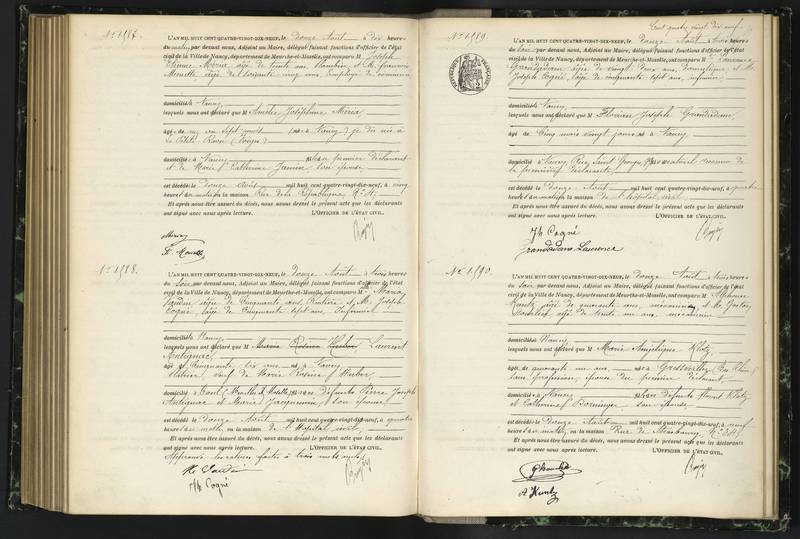 N° 1587.
L'AN MIL HUIT CENT QUATRE-VINGT-DIX-NEUF, le douze Août à dix heures
du matin, par devant nous, Adjoint au Maire, délégué faisant fonctions d'officier de l'état
civil de la Ville de Nancy, département de Meurthe-et-Moselle, ont comparu M Joseph
âgé de trente ans, et M. François
âgé de soixante cinq ans, employé de commerce
domiciliés à Nancy
lesquels nous ont déclaré que M Amélie Joséphine
âgé de un an sept mois né à Nancy
La Petite Raon (Vosges)
domicilié à Nancy fils du premier déclarant
et de Marie Catherine son épouse
est décédé le douze Août mil huit cent quatre-vingt-dix-neuf, à cinq
heures du matin en la maison Rue de la République N°
Et après nous être assuré du décès, nous avons dressé le présent acte que les déclarants
ont signé avec nous après lecture. L'OFFICIER DE L'ÉTAT CIVIL.
N° 1588.
L'AN MIL HUIT CENT QUATRE-VINGT-DIX-NEUF, le douze Août à trois heures
du soir, par devant nous, Adjoint au Maire, délégué faisant fonctions d'officier de l'état
civil de la Ville de Nancy, département de Meurthe-et-Moselle, ont comparu M Maria
âgée de cinquante ans, Rentière et M. Joseph
Cogné, âgé de cinquante sept ans, Infirmier
domiciliés à Nancy
lesquels nous ont déclaré que M Laurent
Antignac,
âgé de cinquante six ans né à Nancy
veuf de Marie Rosine Huber
domicilié à Toul (Meurthe & Moselle) fils de défunts Pierre Joseph
Antignac et Marie Jacquemin, son épouse
est décédé le douze Août mil huit cent quatre-vingt-dix-neuf, à quatre
heures du matin en la maison de l'hôpital civil,
Et après nous être assuré du décès, nous avons dressé le présent acte que les déclarants
ont signé avec nous après lecture. L'OFFICIER DE L'ÉTAT CIVIL.
Approuvé la rature faite à trois mots nuls
Jh Cogné
Cent quatre vingt dix neuf
N° 1589.
L'AN MIL HUIT CENT QUATRE-VINGT-DIX-NEUF, le douze Août à trois heures
du soir, par devant nous, Adjoint au Maire, délégué faisant fonctions d'officier de l'état
civil de la Ville de Nancy, département de Meurthe-et-Moselle, ont comparu M Laurence
Granddidana âgée de vingt deux ans, domestique et M.
Joseph Cogné, âgé de cinquante sept ans, infirmier
domiciliés à Nancy
lesquels nous ont déclaré que M Florian Joseph Granddidana,
âgé de cinq mois vingt jours né à Nancy
domicilié à Nancy, Rue Saint Georges, fils naturel reconnu de
la première déclarante,
est décédé le douze Août mil huit cent quatre-vingt-dix-neuf, à quatre
heures du matin en la maison de l'hôpital civil,
Et après nous être assuré du décès, nous avons dressé le présent acte que les déclarants
ont signé avec nous après lecture. L'OFFICIER DE L'ÉTAT CIVIL.
Jh Cogné
Laurence
N° 1590.
L'AN MIL HUIT CENT QUATRE-VINGT-DIX-NEUF, le douze Août à trois heures
du soir, par devant nous, Adjoint au Maire, délégué faisant fonctions d'officier de l'état
civil de la Ville de Nancy, département de Meurthe-et-Moselle, ont comparu M Alphonse
Kuntz, âgé de quarante ans, et M. Gustave
âgé de trente un ans, mécanicien
domiciliés à Nancy
lesquels nous ont déclaré que M Marie Angélique Klotz,
âgé de quarante un ans né à (Bas Rhin)
sans profession, épouse du premier déclarant,
domicilié à Nancy fils de défunts Florent Klotz
et Catherine son épouse
est décédé le douze Août mil huit cent quatre-vingt-dix-neuf, à neuf
heures du matin, en la maison Rue de Strasbourg, N°
Et après nous être assuré du décès, nous avons dressé le présent acte que les déclarants
ont signé avec nous après lecture. L'OFFICIER DE L'ÉTAT CIVIL.
A Kuntz